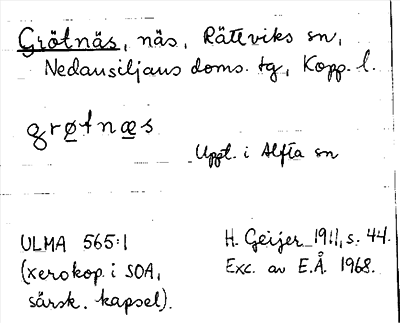 Grötnäs, näs, Rättviks sn,
Nedansiljans doms. tg, Kopp. l.
grøtnæs
Uppt. i Alfta sn
ULMA 565:1
(xerokop. i SOA,
särsk. kapsel).
H. Geijer 1911, s. 44.
Exc. av E.Å. 1968.